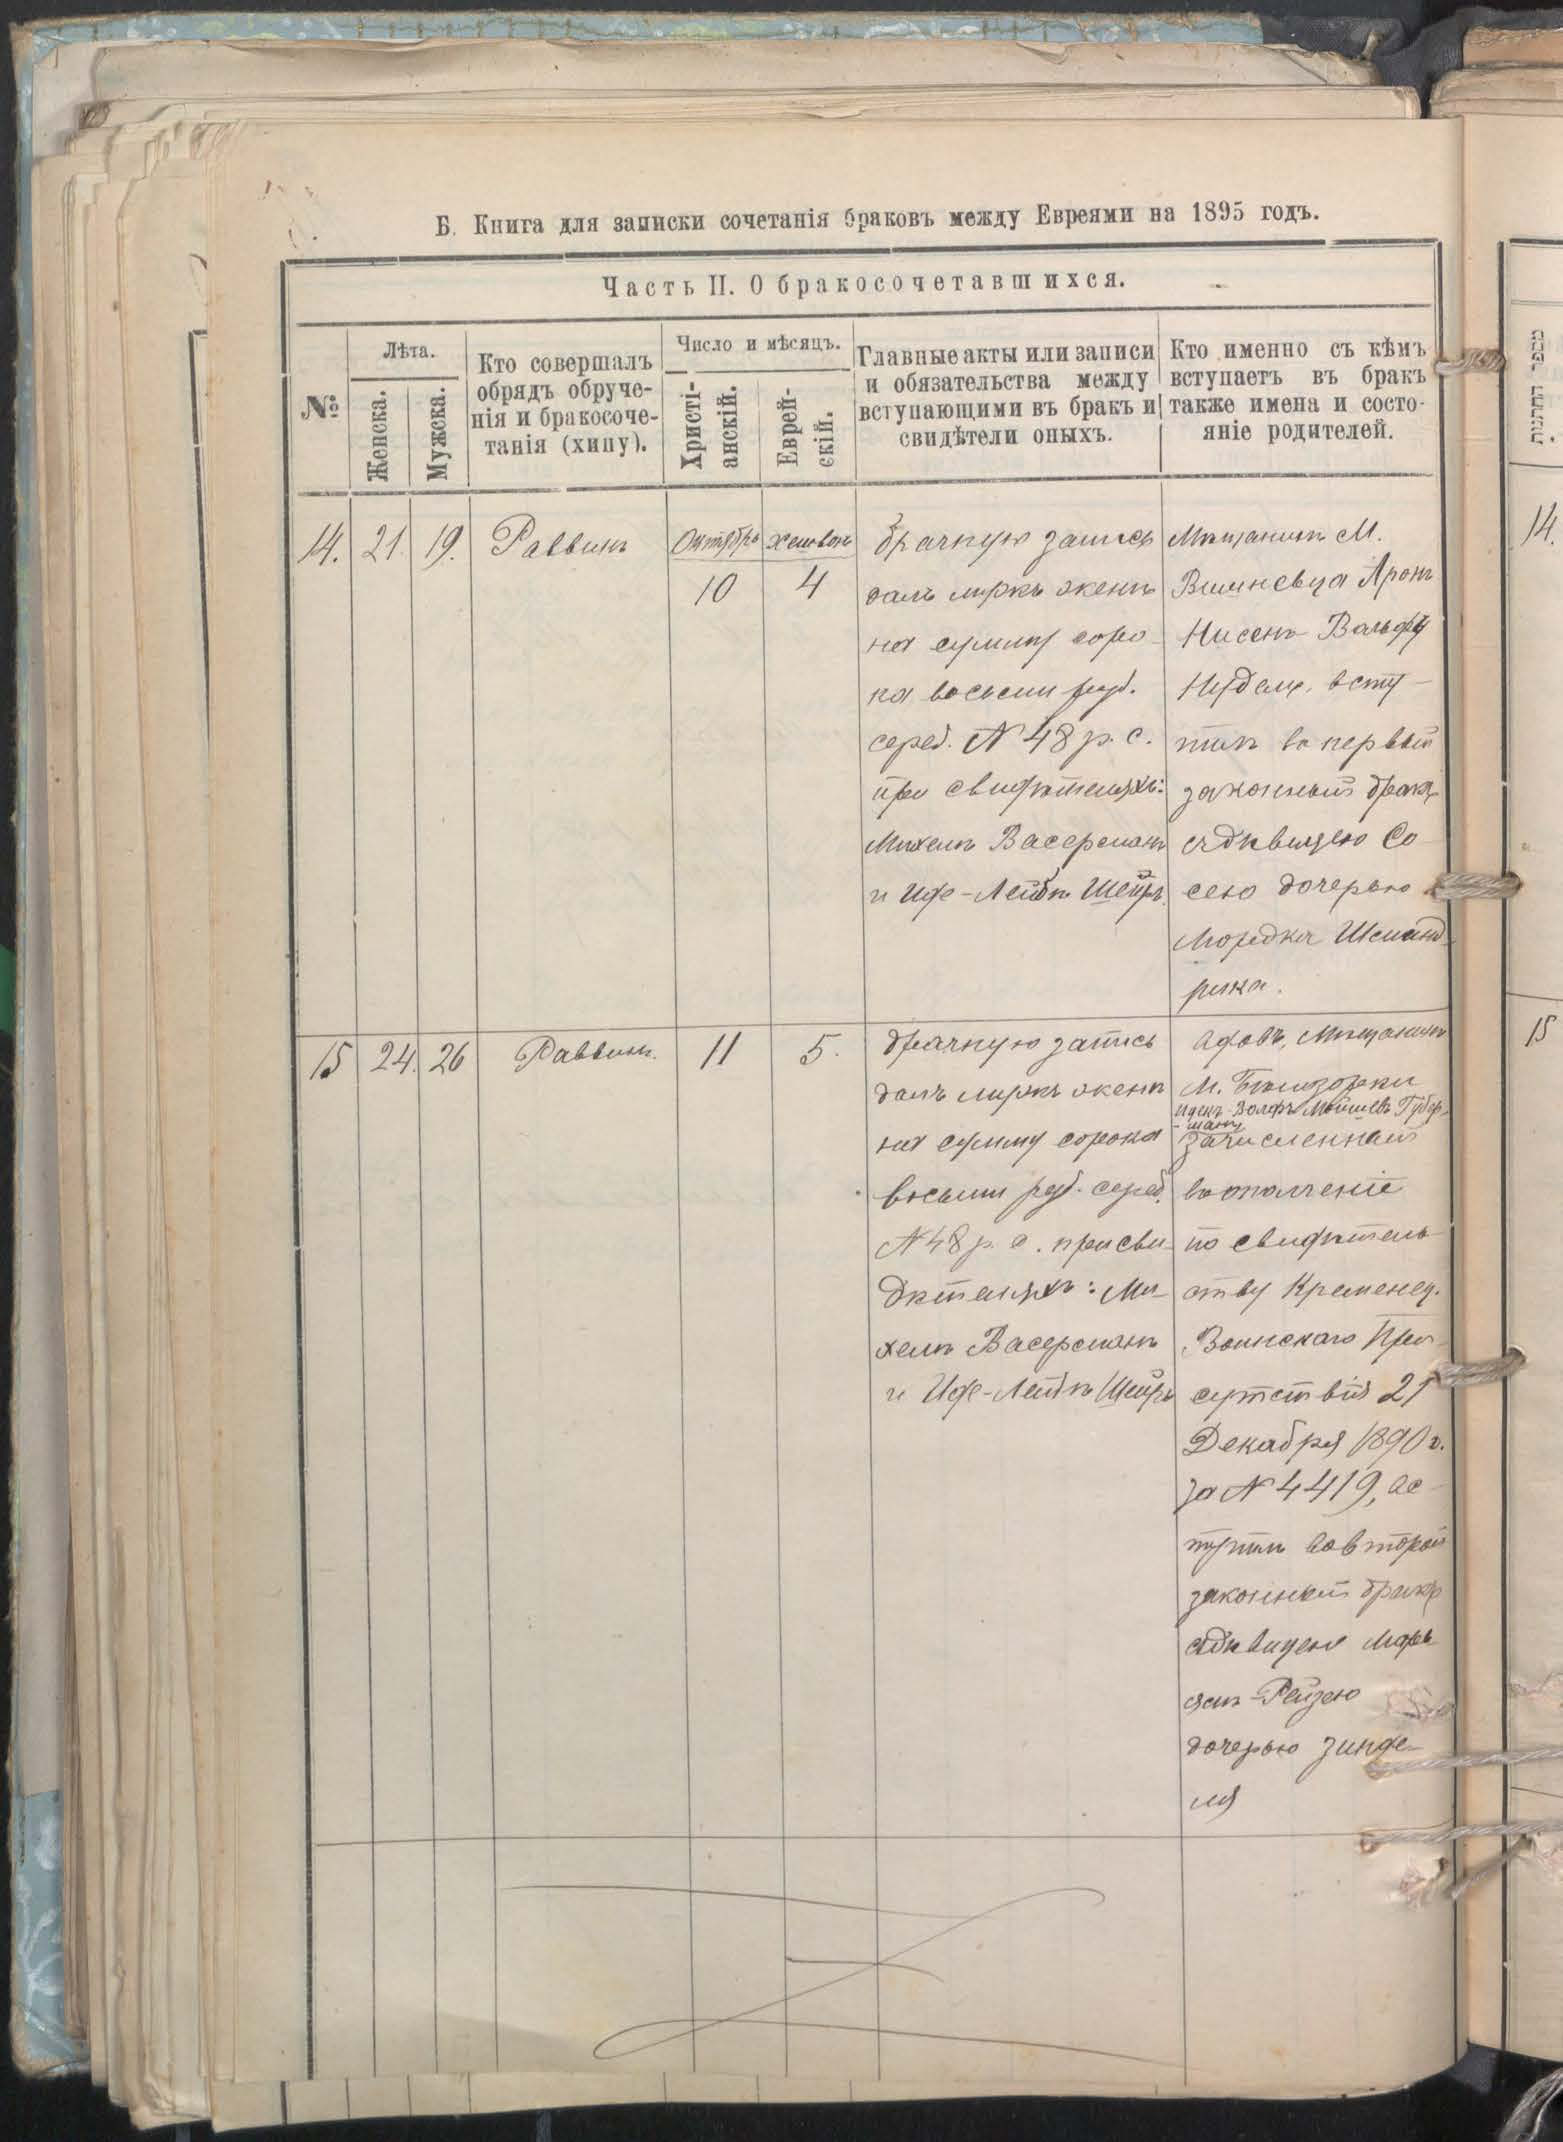 Б. Книга для записки сочетанія браковъ между Евреями на 1895 годъ.
Часть II. О бракосочетавшихся.
№
Лѣта.
Женска.
Мужска.
Кто совершалъ
обрядъ обруче-
нія и бракосоче-
танія (хипу).
Число и мѣсяцъ.
Христі-
анскій.
Еврей-
скій.
Главные акты или записи
и обязательства между
вступающими въ бракъ и
свидѣтели оныхъ.
Кто именно съ кѣмъ
вступаетъ въ бракъ
также имена и состо-
яніе родителей.
14.
21.
19.
Раввинъ
Октябрь
10
Хешвонъ
4
брачную запись
далъ мужъ женѣ
на сумму соро-
ка восьми руб.
сереб. № 48 р. с.
при свидѣтеляхъ:
Михель Васерманъ
и Иде-Лейбъ Шейръ.
Мѣщанинъ М.
Вишневца Аронъ
Нисенъ Вольфъ
Нудель, всту-
пилъ въ первый
законный бракъ
съ дѣвицею Со-
сею дочерью
Мордка Шманд-
рика.
15
24.
26
Раввинъ.
11
5.
брачную запись
далъ мужъ женѣ
на сумму сорока
восьми руб. сереб.
№ 48 р. с. при сви-
дѣтеляхъ: Ми-
хель Васерманъ
и Иде-Лейбъ Шейръ
мѣщанинъ
М. Бѣлозорки
Вольфъ Мошковъ Губер-
-манъ
зачисленный
въ ополченіе
по свидѣтель-
ству Кременец.
Воинскаго При-
сутствія 21
Декабря 1890 г.
за № 4419, вс-
тупилъ во второй
законный бракъ
съ дѣвицею Марь-
ямъ-Рейзею
дочерью Зинде-
ля
14.
15